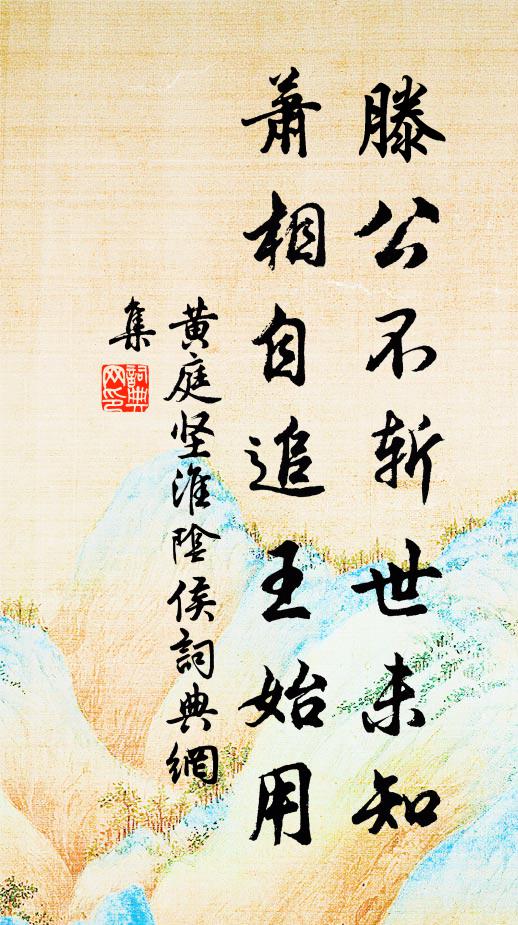 滕公不斩世未知
萧相自追王始用
黄庭坚淮陰侯詞典網
集
詞典
网印